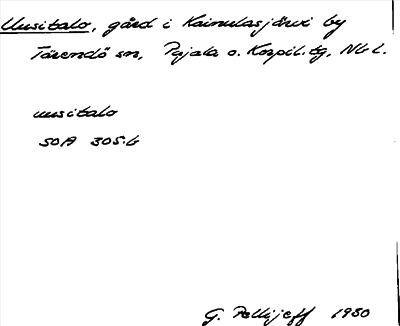 Uusitalo, gård i Kainulasjärvi by
Tärendö sn, Pajala o. Korpil. tg, Nb l.
uusitalo
SOA 305:6
G. Pellijeff 1980